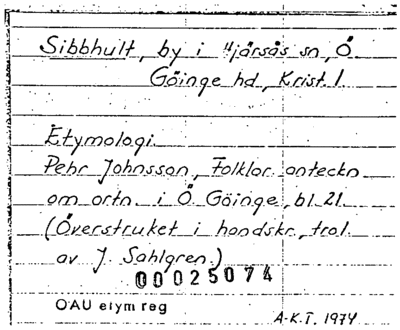 Sibbhult, by i Hjärsås sn, Ö
Göinge hd, Krist. l.
Etymologi.
Pehr Johnsson, Folklor. anteckn
om ortn. i Ö Göinge, bl. 21.
(Överstruket i handskr., trol.
av J. Sahlgren.)
00025074
OAU etym reg
A-K.T. 1974